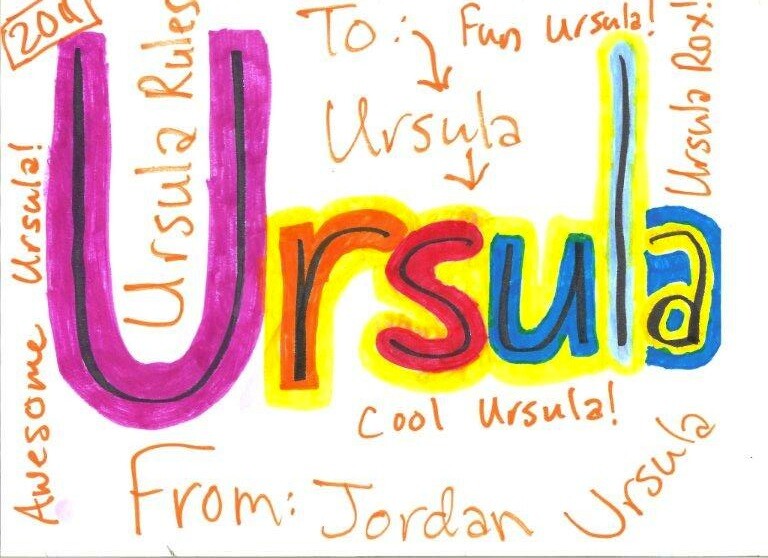 2011
Ursula Rules
To:
Fun Ursula!
Ursula Rox!
Ursula
Awesome Ursula!
Ursula
Cool Ursula!
From: Jordan
Ursula